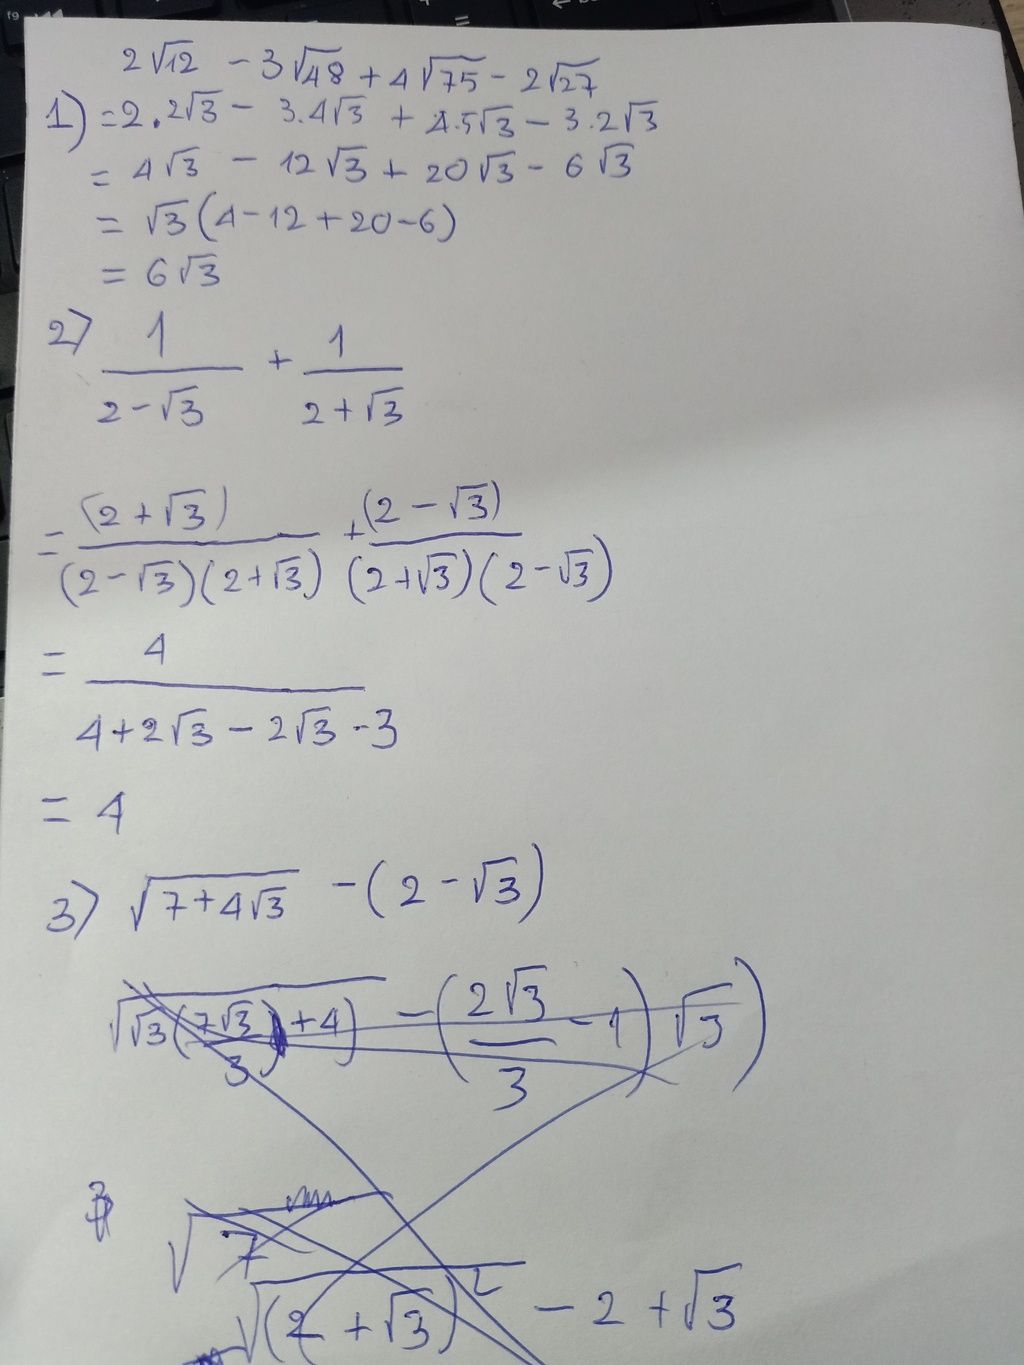 f9
2√12 - 3√48 + 4√75 - 2√27
1) = 2.2√3 - 3.4√3 + 4.5√3 - 3.2√3
= 4√3 - 12√3 + 20√3 - 6√3
= √3(4-12+20-6)
= 6√3
2) 1/(2-√3) + 1/(2+√3)
= (2+√3)/((2-√3)(2+√3)) + (2-√3)/((2+√3)(2-√3))
= 4/(4+2√3-2√3-3)
= 4
3) √(7+4√3) - (2-√3)
√(√3(7√3/3+4)) - (2√3/3 - 1)√3)
3
√7
√((2+√3)²) - 2 + √3